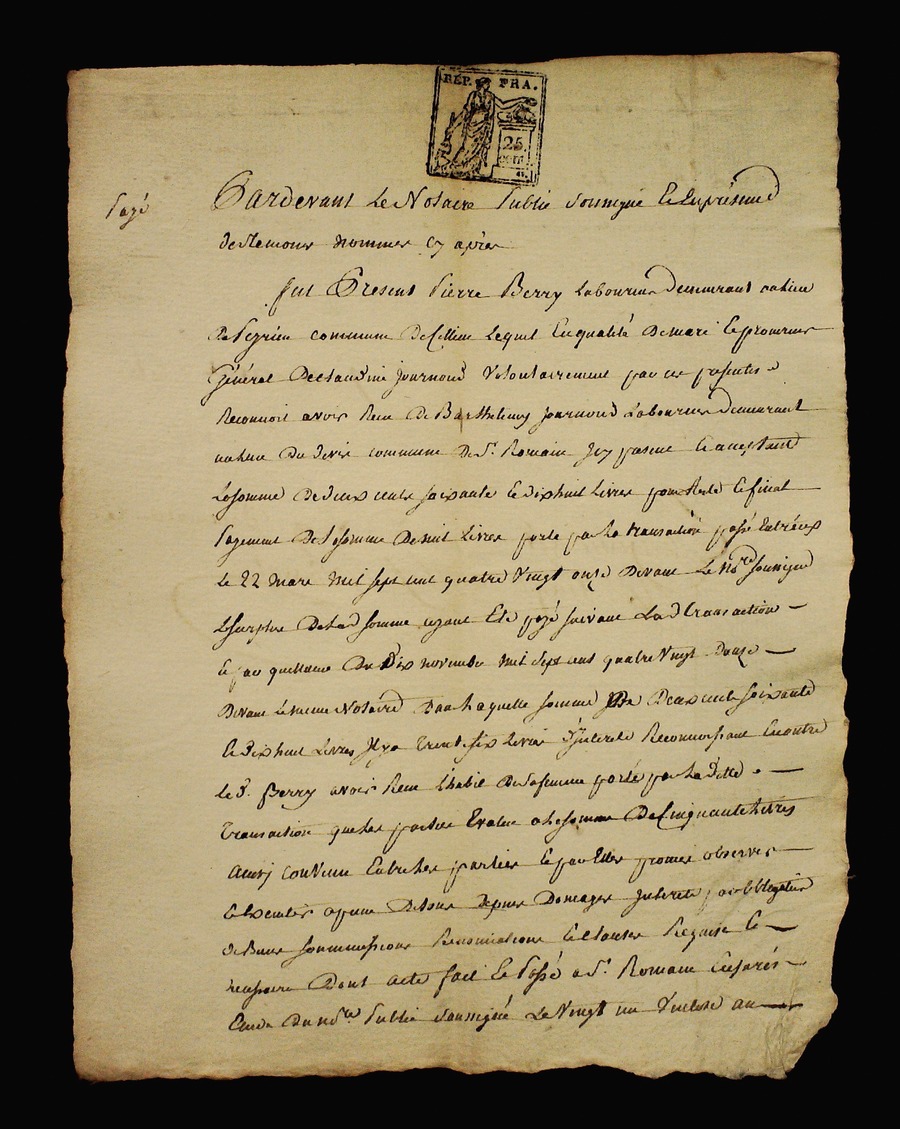 REP. FRA.
25.
cent.
payé
Pardevant Le Notaire Public soussigné Et En présence
des temoins nommes cy après
fut Present Pierre Berry Laboureur Demeurant au lieu
commune De Cellieu Lequel En qualité De mari Et procureur
Général De Claudine Journoud Volontairement par ces presentes
Reconnoit avoir Reçu De Barthelemy Journoud Laboureur Demeurant
au lieu Du commune De St. Romain Jcy present Et acceptant
La somme De deux cents soixante Et dix huit Livres pour Reste Et final
payement De La somme De mil Livres porté par La transaction passé Entr'eux
Le 22 mars mil sept cent quatre Vingt onze Devant Le Nore soussigné
Le surplus De Lad somme ayant Eté payé suivant Lad transaction
Et par quittance Du Dix novembre mil sept cent quatre Vingt Douze
Devant Le meme Notaire Dans Laquelle somme De Deux cents soixante
Et dix huit Livres Jl y a trente six Livres D'jnterets Reconnoissant En outre
Le d. Berry avoir Reçu L'habit De sa femme porté par La ditte
transaction que Les parties Evalue a La somme De Cinquante Livres
Ainsj convenu Entre Les parties Et par Elles promis observer
Et Executer a peine De tous Depens Domages jnterets par obligation
De Biens soummissions Renonciations Et Clauses Requise Et
necessaire Dont acte fait Et Passé a St. Romain En prés-
Ence Du nore Public soussigné Le Vingt un Ventose an